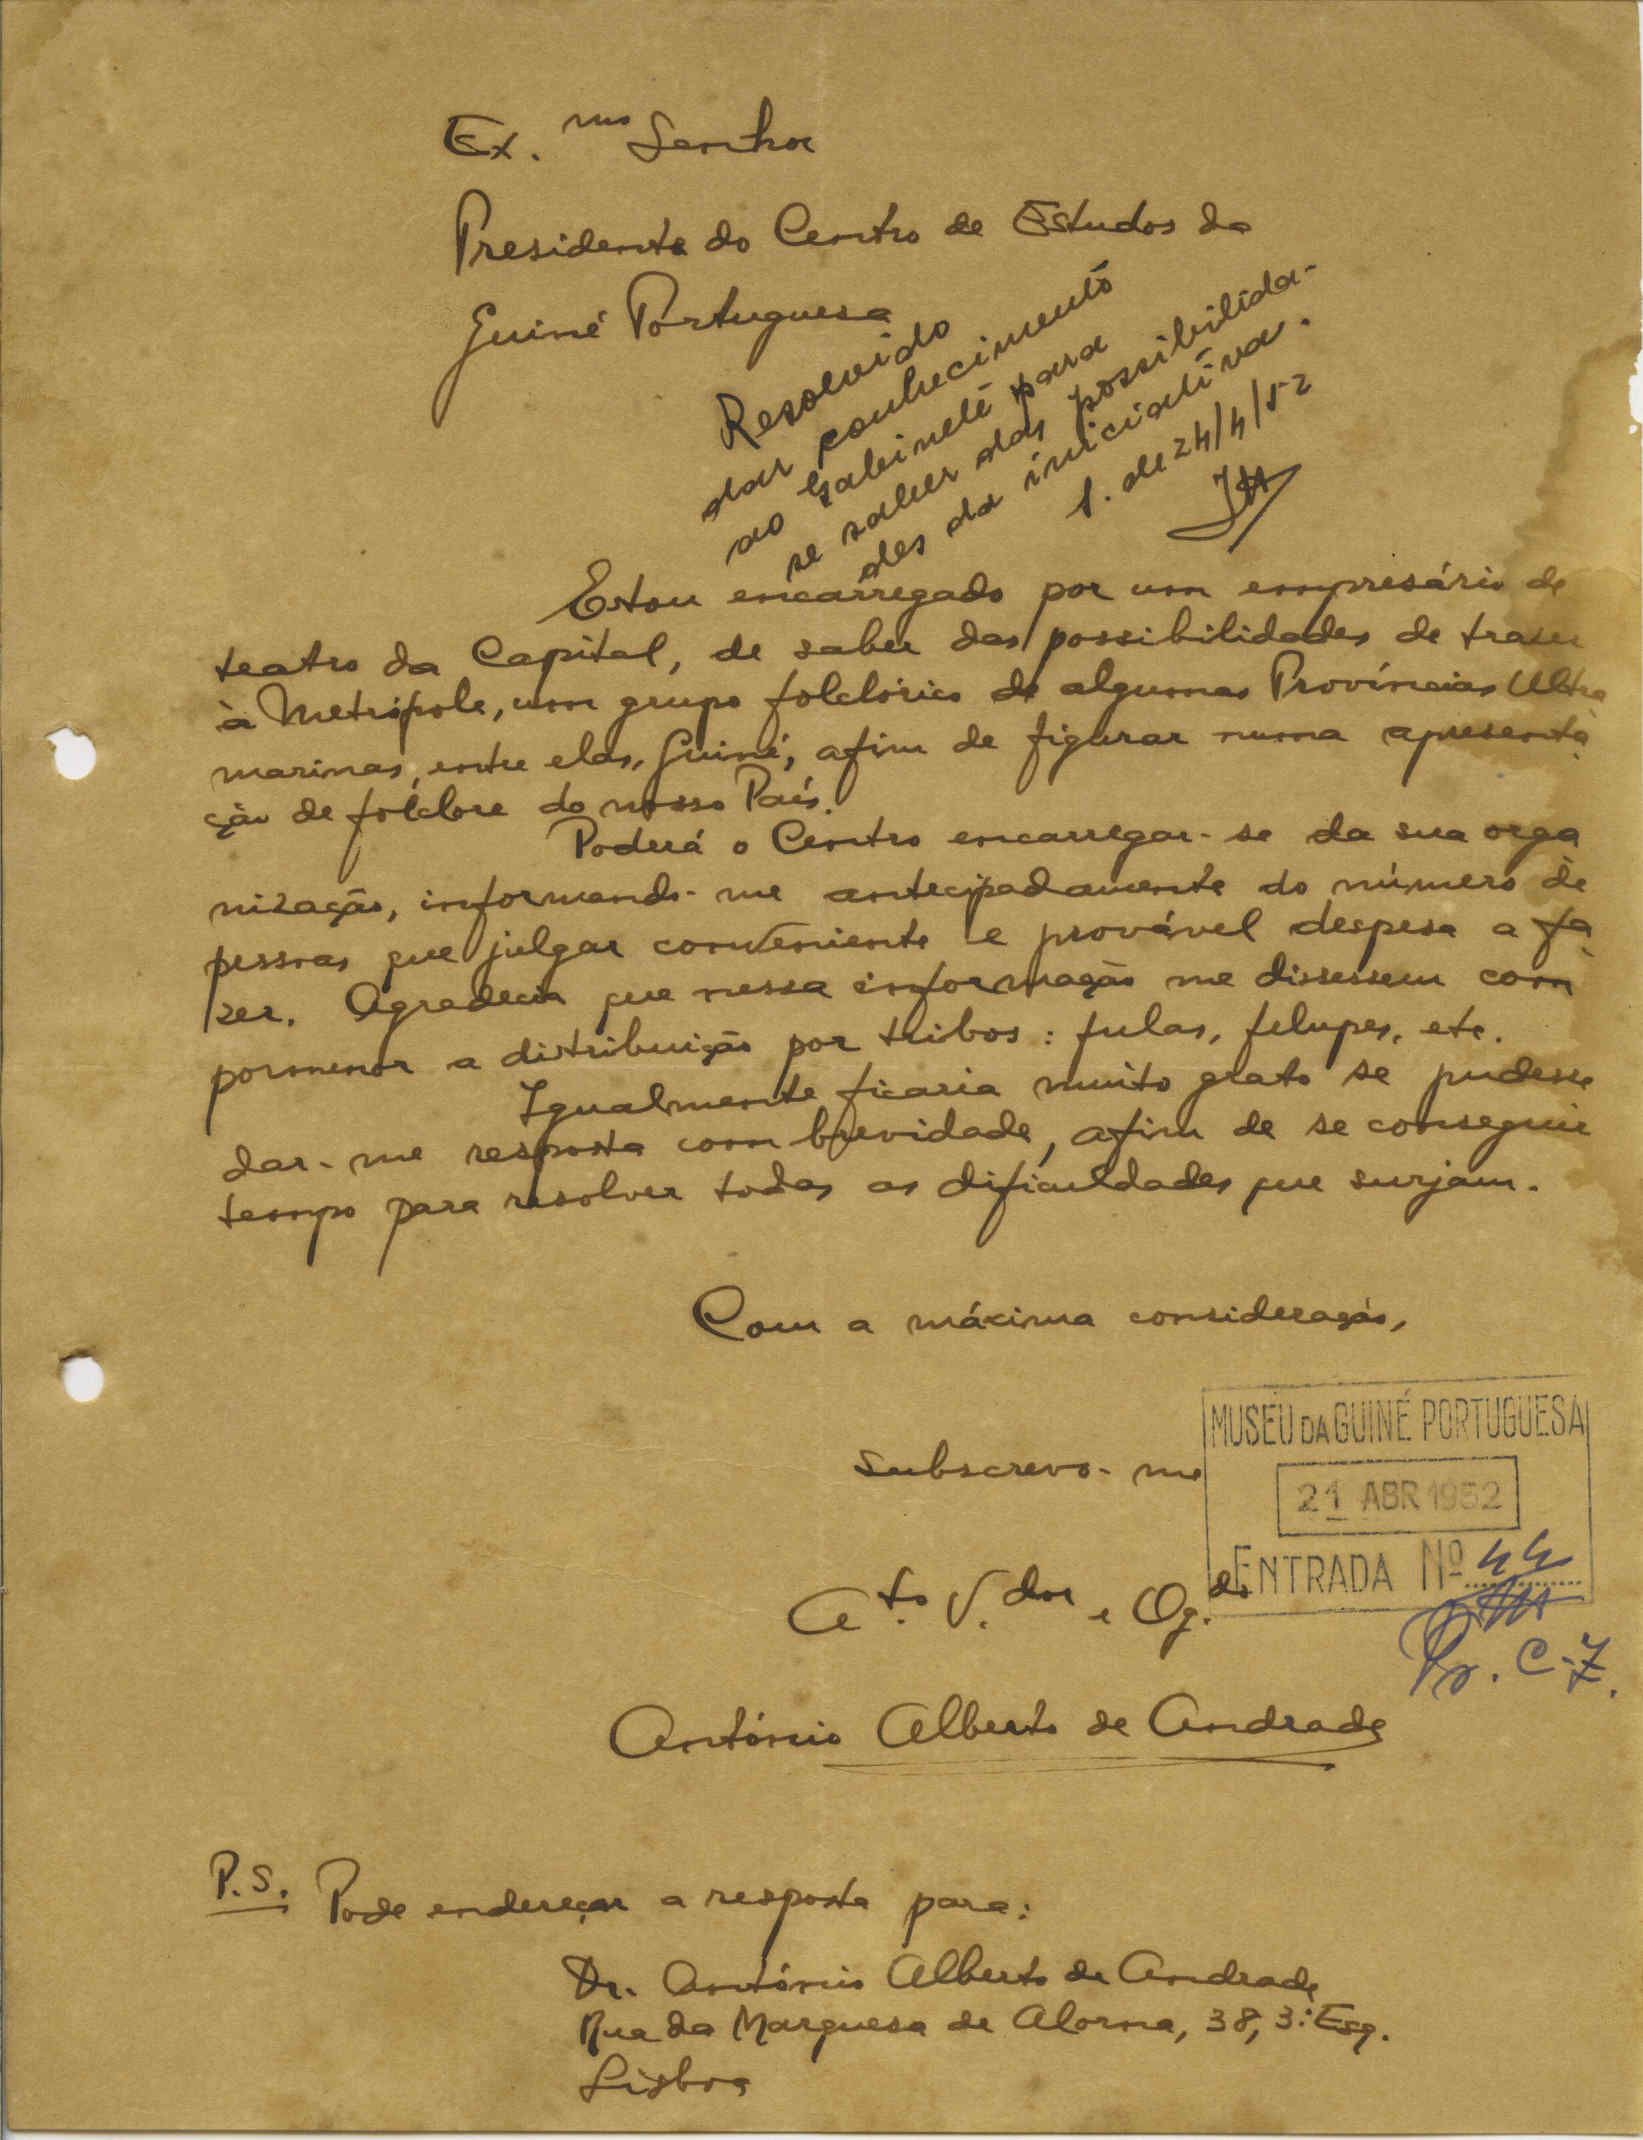 Ex.mo Senhor
Presidente do Centro de Estudos da
Guiné Portuguesa
Resolvido
dar conhecimento
ao Gabinete para
se saber das possibilida-
des da iniciativa.
S. de 24/4/52
Estou encarregado por um empresário de
teatro da Capital, de saber das possibilidades de trazer
à Metrópole, um grupo folclórico de algumas Províncias Ultra
marinas, entre elas, Guiné, afim de figurar numa apresenta
ção de folclore do nosso País.
Poderá o Centro encarregar-se da sua orga
nização, informando-me antecipadamente do número de
pessoas que julgar conveniente e provável despesa a fa
zer. Agradecia que nessa informação me dissessem com
pormenor a distribuição por tribos: fulas, felupes, etc.
Igualmente ficaria muito grato se pudesse
dar-me resposta com brevidade, afim de se conseguir
tempo para resolver todas as dificuldades que surjam.
Com a máxima consideração,
Subscrevo-me
MUSEU DA GUINÉ PORTUGUESA
21 ABR 1952
ENTRADA Nº 44
At.o V.dor e Og.do
Pr. C-7.
António Alberto de Andrade
P.S. Pode endereçar a resposta para:
Dr. António Alberto de Andrade
Rua da Marquesa de Alorna, 38, 3.º Esq.
Lisboa